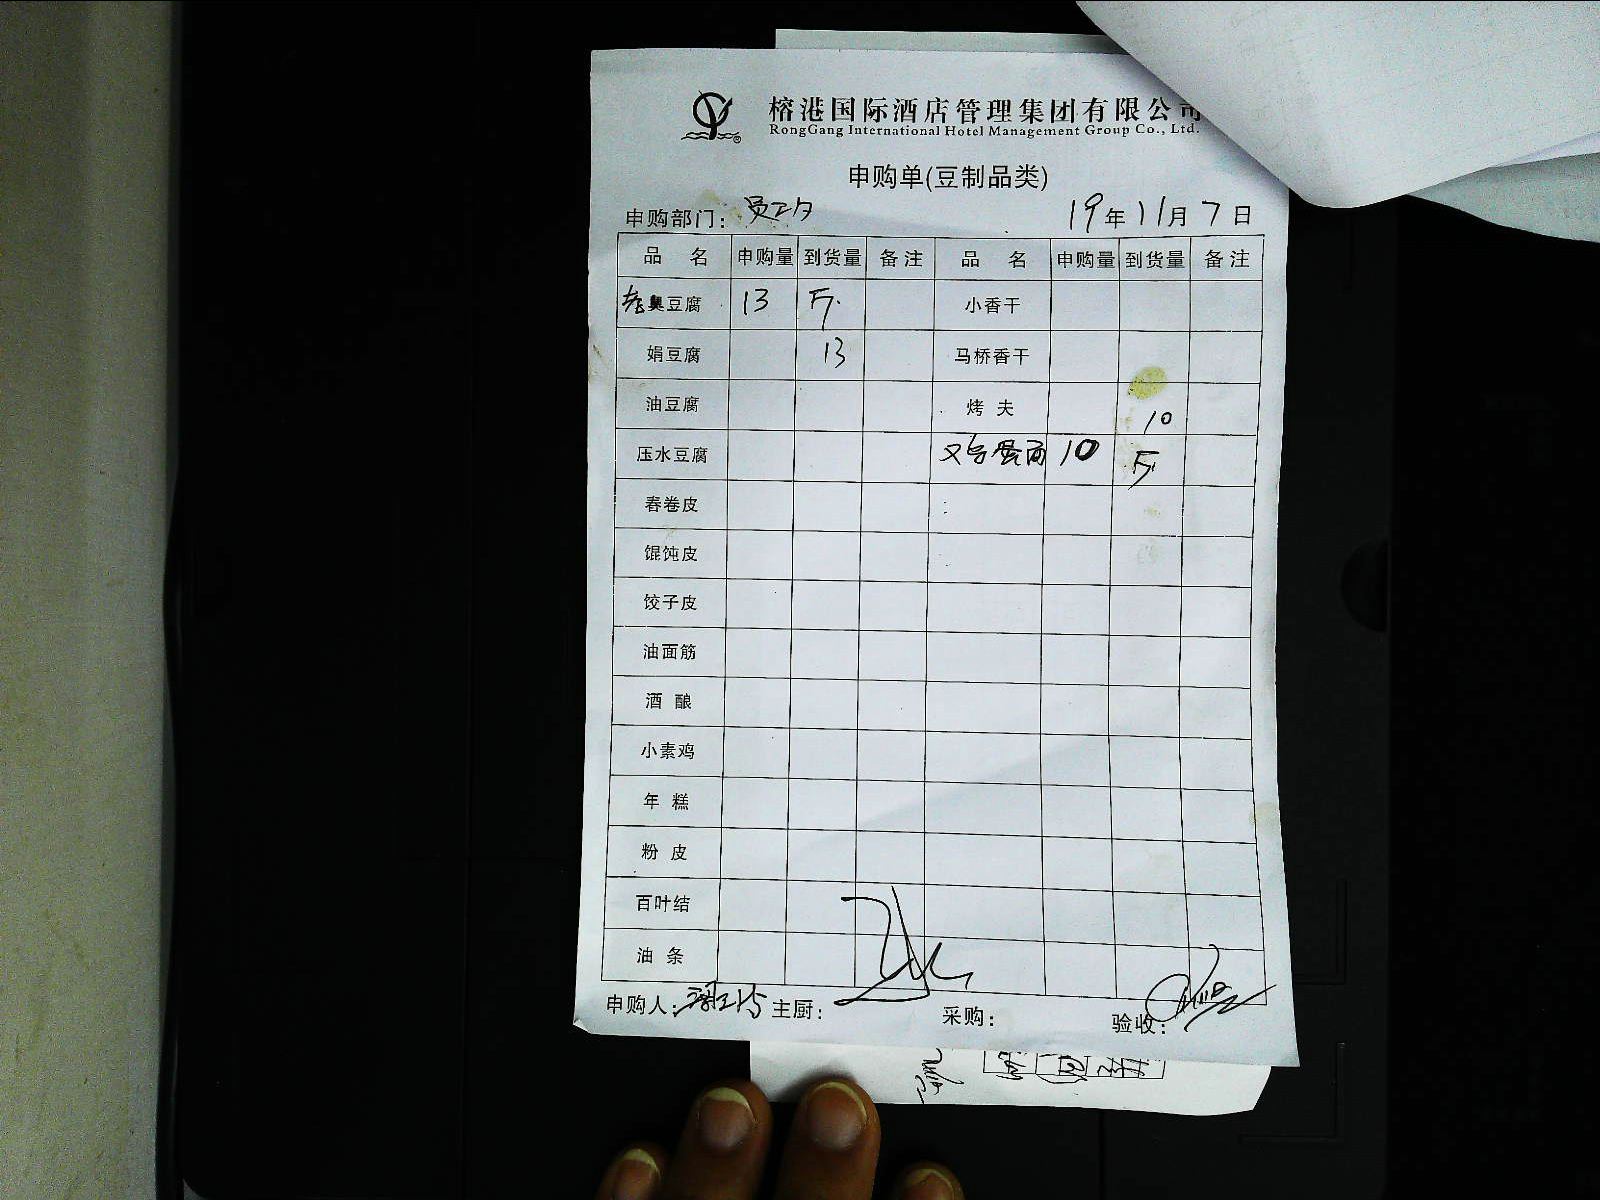 榕港国际酒店管理集团有限公司
RongGang International Hotel Management Group Co., Ltd.
申购单(豆制品类)
申购部门: 员工 19年11月7日
品名 申购量 到货量 备注 品名 申购量 到货量 备注
老臭豆腐 13 斤 小香干
娟豆腐 13 马桥香干
油豆腐 烤夫 10
压水豆腐 鸡蛋面 10 斤
春卷皮
馄饨皮
饺子皮
油面筋
酒酿
小素鸡
年糕
粉皮
百叶结
油条
申购人: 主厨: 采购: 验收: